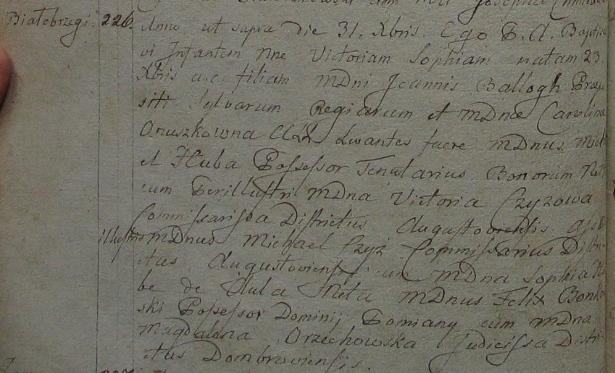 Białobrzegi. 226.
Anno ut supra die 31. Xbris. Ego P. A. Baptisa
vi Infantem nne Victoriam Sophiam natam 23.
Xbris a.c. filiam MDni Joannis Ballogh Præpo
siti Sylvarum Regiarum et MDnæ Carolina
Onuszkowna Levantes fuere MDnus
et Hluba Possessor Tenutarius Bonorum
cum Perillustri MDna Victoria Czyzowa
Commissarissa Districtus Augustoviensis
illustris MDnus Michael Czyż Commissarius Distri
ctus Augustoviensis cum MDna Sophia
be de MDnus Felix
ski Possessor Dominij Pomiany cum MDna
Magdalena Orzechowska Judicissa Distri
ctus Dombroviensis.